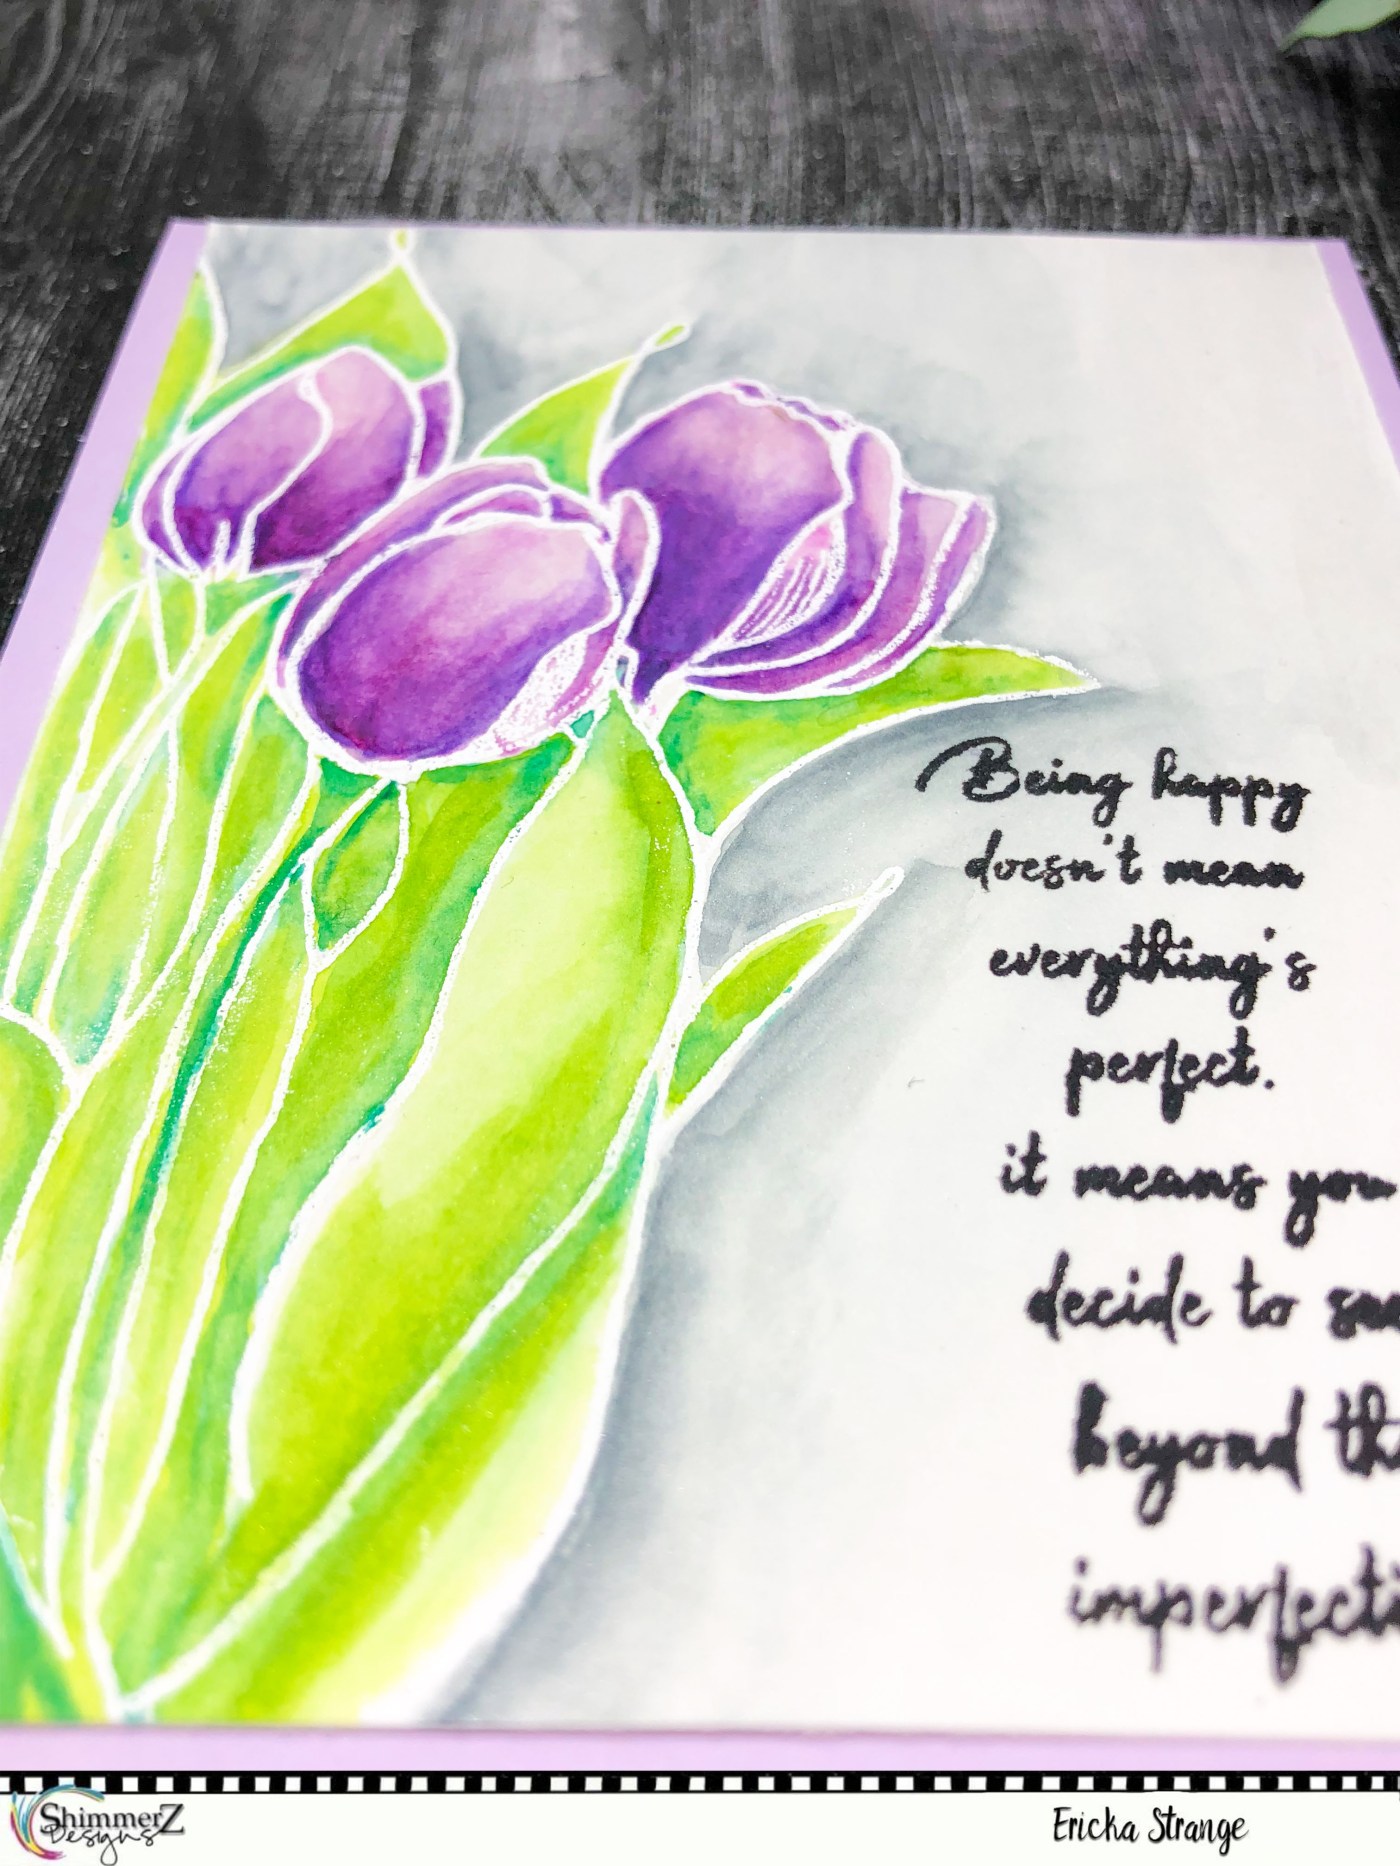 Being happy
doesn't mean
everything's
perfect.
it means you
decide to
beyond
ShimmerZ
Designs
Ericka Strange